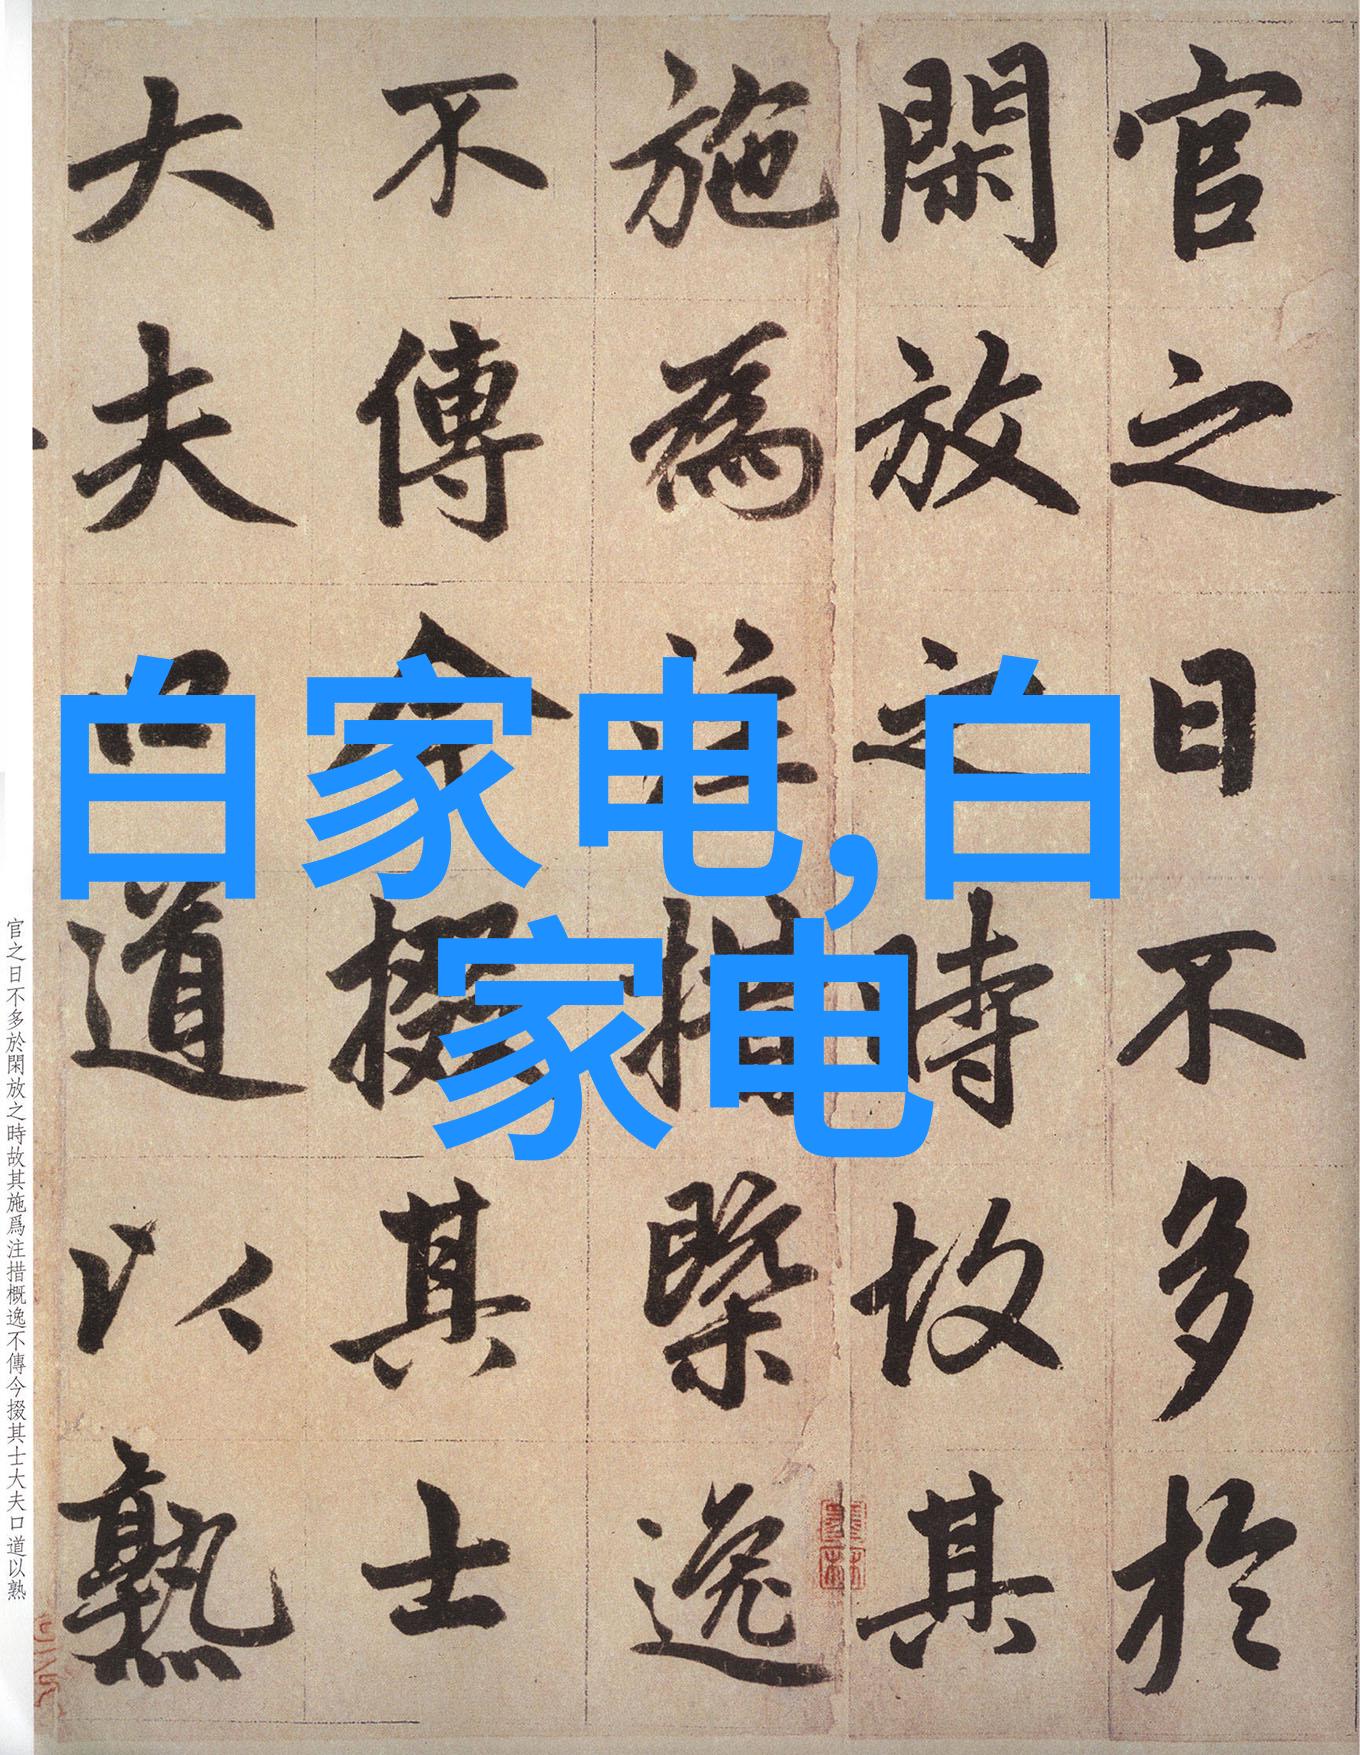 官之日不多於
閑放之時故其
施為注措槩逸
不傳今掇其士
大夫口道以熟
白家电,白
家电
官之日不多於閑放之時故其施爲注措概逸不傳今掇其士大夫口道以熟